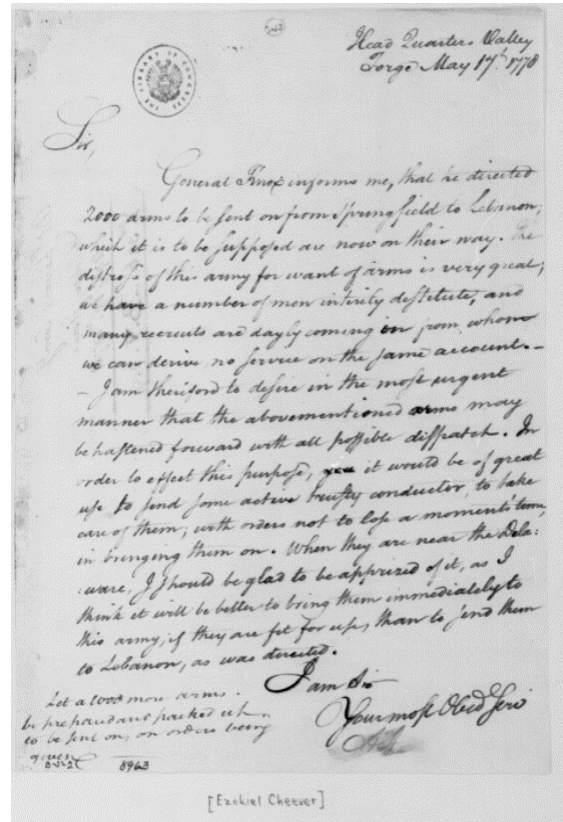 Head Quarters Valley
Forge May 17th. 1778
THE LIBRARY OF CONGRESS
Sir,
General Knox informs me, that he directed
2000 arms to be sent on from Springfield to Lebanon,
which it is to be supposed are now on their way. The
distress of this army for want of arms is very great;
we have a number of men intirely destitute, and
many recruits are dayly coming in from whom
we can derive no service on the same account. –
– I am thereford to desire in the most urgent
manner that the abovementioned arms may
be hastened forward with all possible dispatch. In
order to effect this purpose, it would be of great
use to send some active trusty conductor, to take
care of them; with orders not to lose a moments' time,
in bringing them on. When they are near the Dela:
ware, I should be glad to be apprized of it, as I
think it will be better to bring them immediately to
this army, if they are fit for use, than to send them
to Lebanon, as was directed.
I am Sir
Your most Obed Serv
Let a 1000 more arms.
be prepard and packed up
to be sent on, on orders being
given
8963
[Ezekiel Cheever]